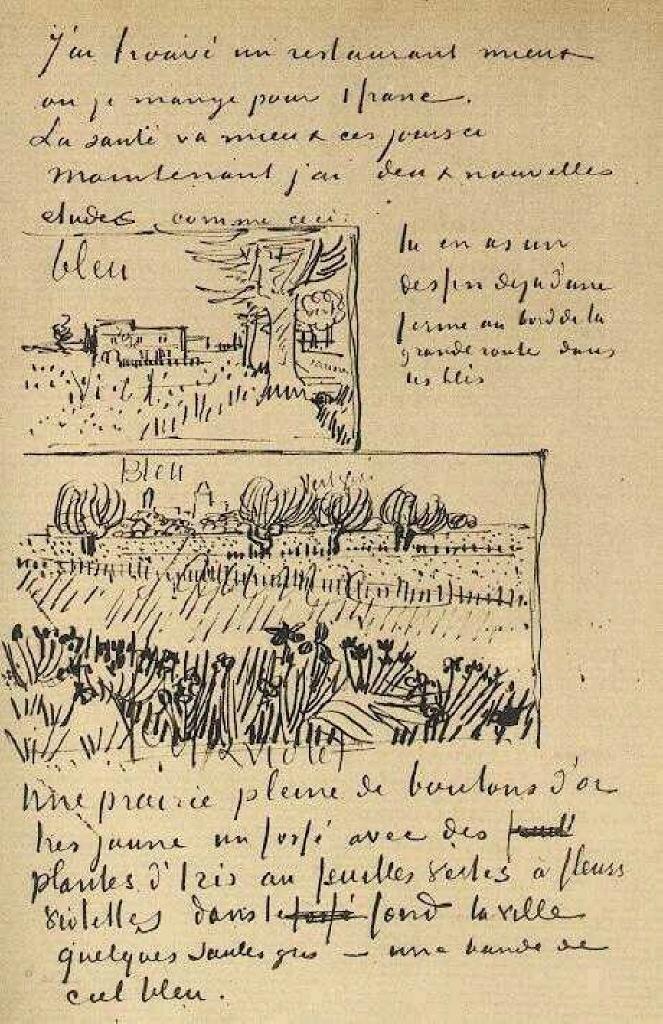 J'ai trouvé un restaurant mieux
ou je mange pour 1 franc.
La santé va mieux ces jours ci
Maintenant j'ai deux nouvelles
etudes comme ceci:
bleu
Tu en as un
dessin deja d'une
ferme au bord de la
grande route dans
les blés
vert
jaune
Bleu
violet
Une prairie pleine de boutons d'or
tres jaune un fossé avec des
plantes d'Iris au feuilles vertes à fleurs
violettes dans le fossé fond la ville
quelques saules gris – une bande de
ciel bleu.